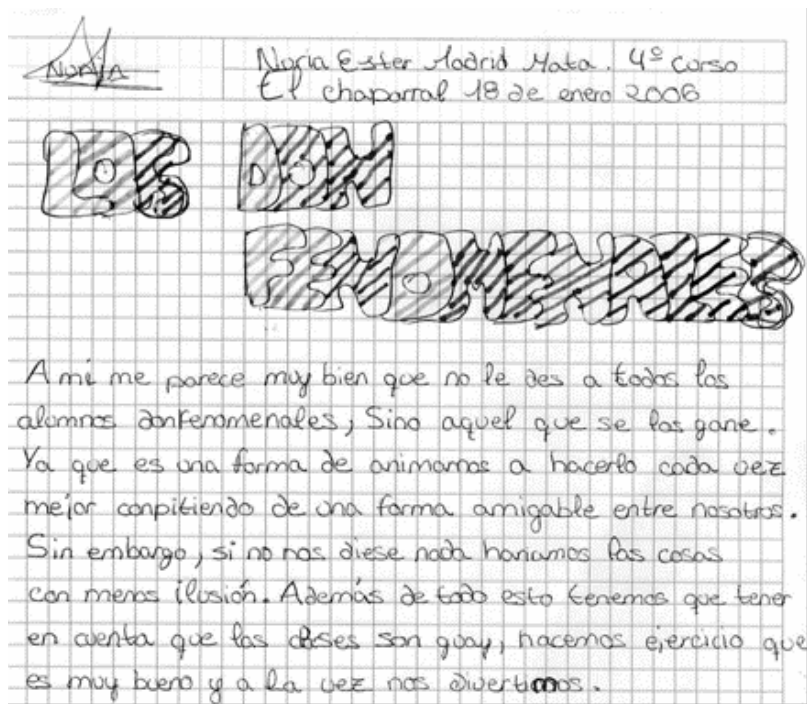 Nuria
Nuria Ester Madrid Mata. 4º curso
El chaparral 18 de enero 2006
LOS DON
FENOMENALES
A mi me parece muy bien que no le des a todos los
alumnos donfenomenales, Sino aquel que se los gane.
Ya que es una forma de animarnos a hacerlo cada vez
mejor conpitiendo de una forma amigable entre nosotros.
Sin embargo, si no nos diese nada hariamos las cosas
con menos ilusión. Además de todo esto tenemos que tener
en cuenta que las clases son guay, hacemos ejercicio que
es muy bueno y a la vez nos divertimos.